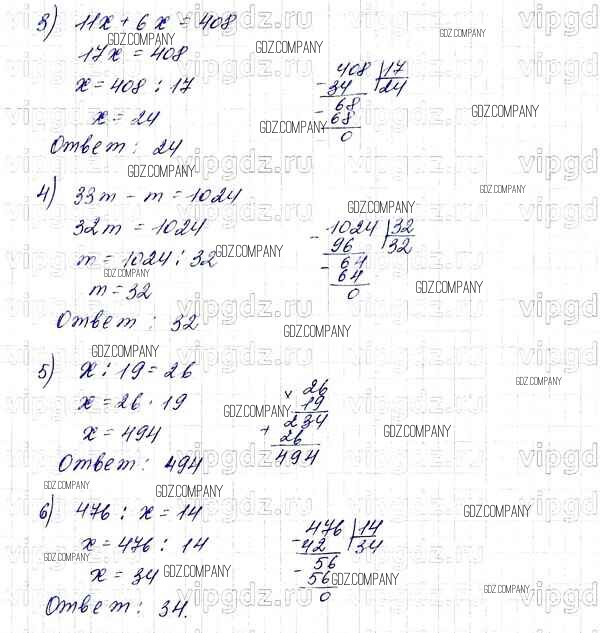 3) 11x + 6x = 408
17x = 408
x = 408 : 17
x = 24
Ответ: 24
408 | 17
- 34 | 24
- 68
68
0
4) 33m - m = 1024
32m = 1024
m = 1024 : 32
m = 32
Ответ: 32
- 1024 | 32
96 | 32
- 64
64
0
5) x : 19 = 26
x = 26 · 19
x = 494
Ответ: 494
× 26
19
+ 234
26
494
6) 476 : x = 14
x = 476 : 14
x = 34
Ответ: 34.
- 476 | 14
42 | 34
- 56
56
0
GDZ.COMPANY
vipgdz.ru